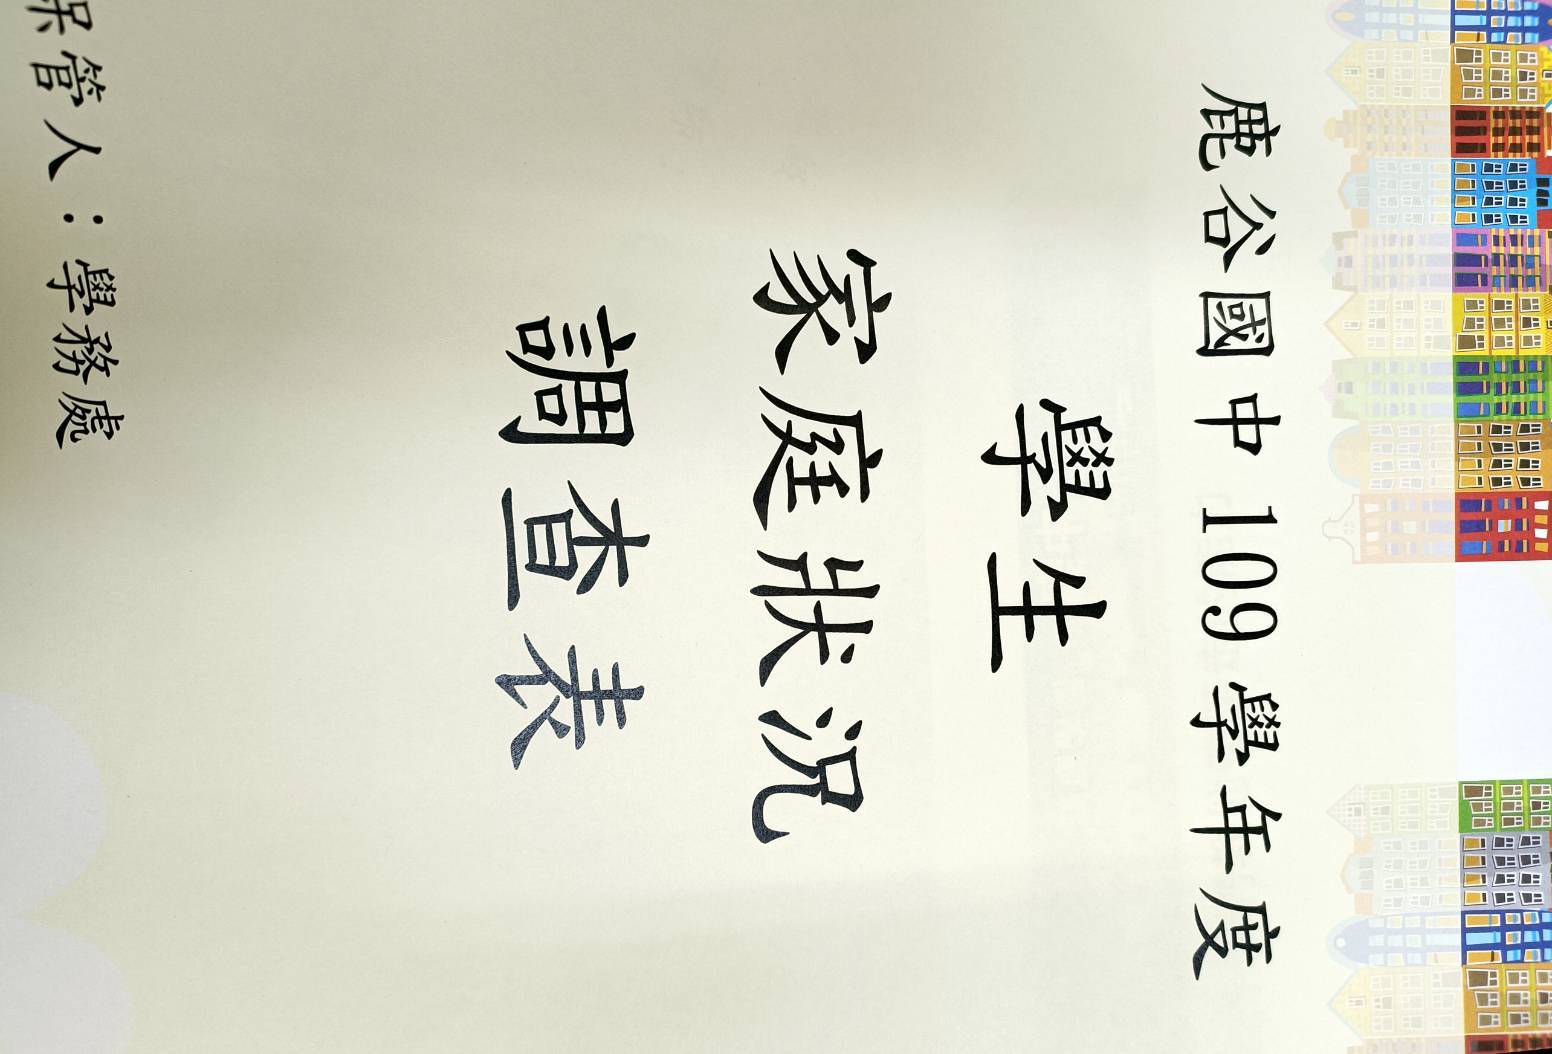 鹿谷國中 109 學年度
學生
家庭狀況
調查表
保管人：學務處